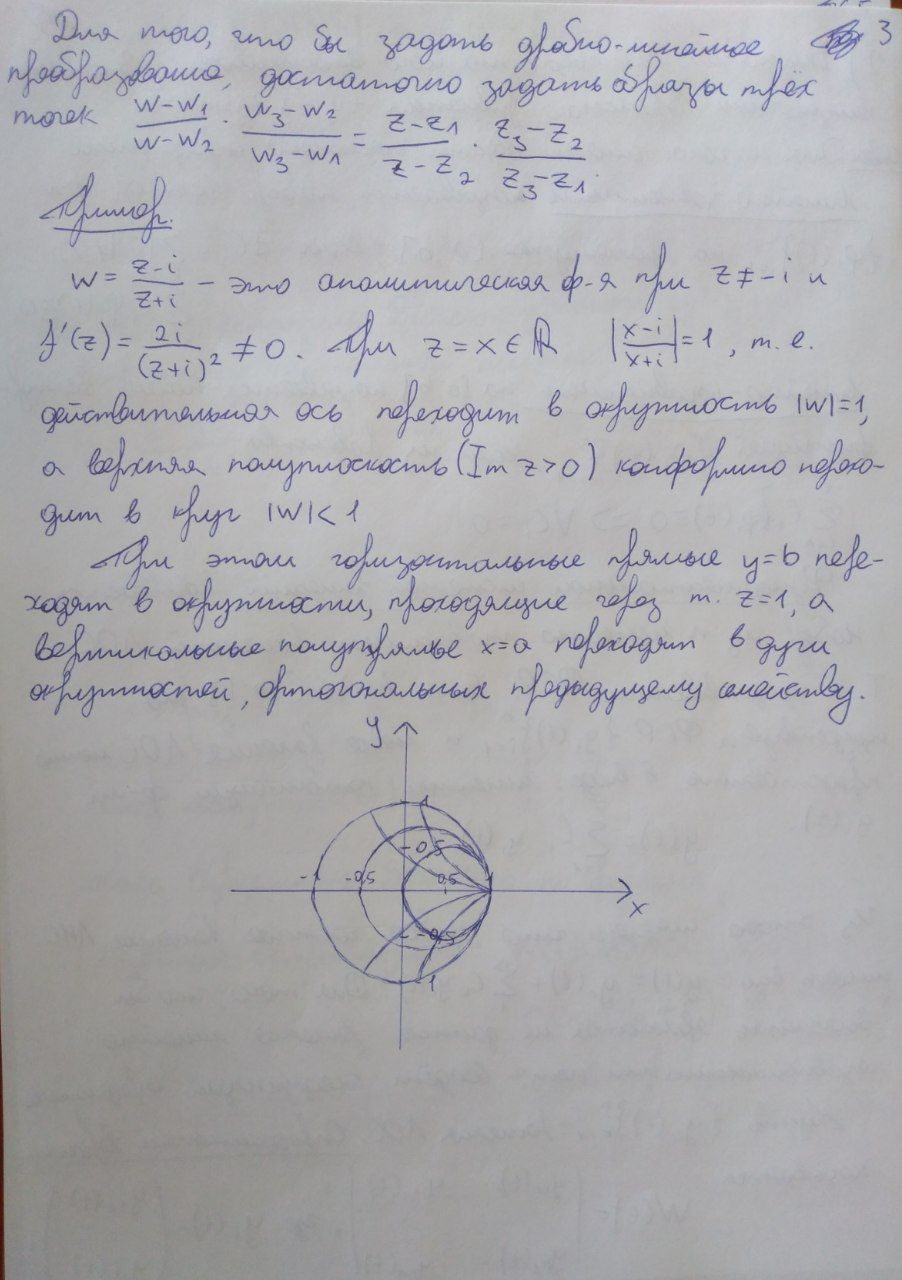 Для того, что бы задать дробно-линейное 3
преобразование, достаточно задать образы трёх
точек (w-w₁)/(w-w₂) · (w₃-w₂)/(w₃-w₁) = (z-z₁)/(z-z₂) · (z₃-z₂)/(z₃-z₁)
Пример.
w = (z-i)/(z+i) – это аналитическая ф-я при z ≠ -i и
f'(z) = 2i/(z+i)² ≠ 0. При z = x ∈ ℝ |(x-i)/(x+i)| = 1, т.е.
действительная ось переходит в окружность |w|=1,
а верхняя полуплоскость (Im z>0) конформно перехо-
дит в круг |w|<1
При этом горизонтальные прямые y=b пере-
ходят в окружности, проходящие через т. z=1, а
вертикальные полупрямые x=a переходят в дуги
окружностей, ортогональных предыдущему семейству.
y
1
-0,5
-1 -0,5 0,5 1
x
-0,5
-1